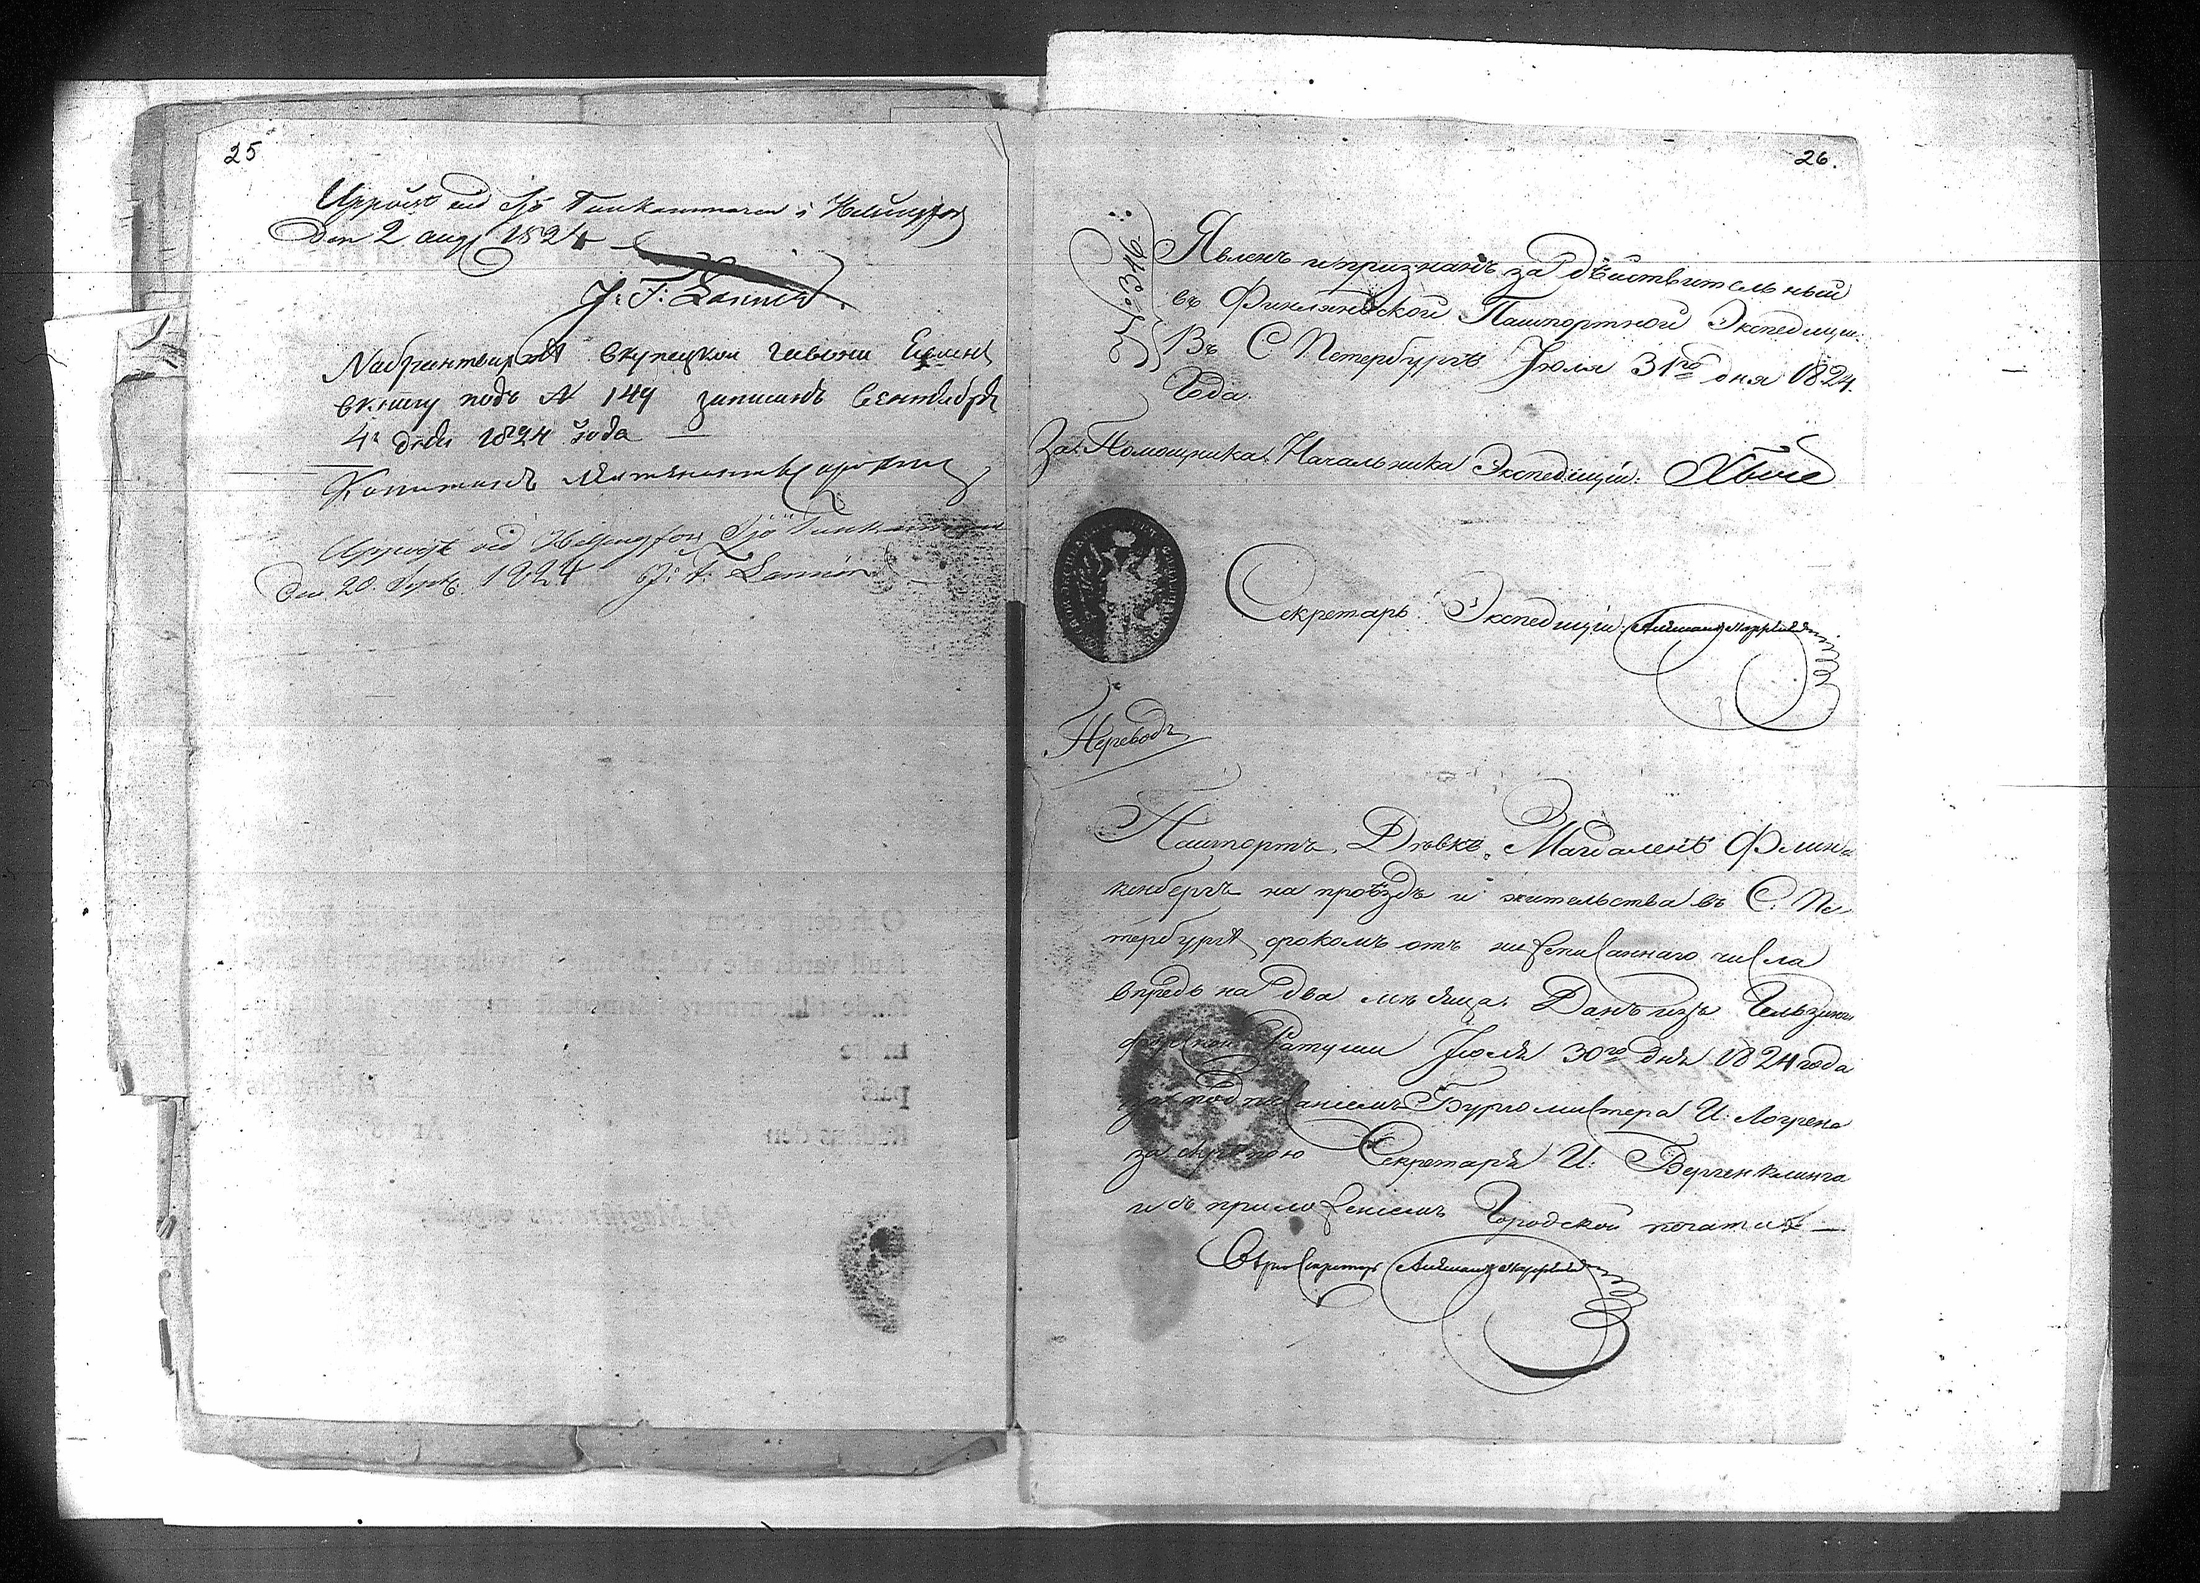 25
Uppvist vid Sjö Tullkammaren i Helsingfors
den 2 aug 1824
J: F: Lannér
На брантвахте в купецкой гавони Явленъ
в книгу подъ № 149 записанъ Сентября
4го дня 1824 года
Капитанъ
Uppvist vid Helsingfors Sjö Tullkammare
den 20. Sept. 1824 J: F: Lannér
26.
Явленъ и признанъ за действительный
въ Финляндской Пашпортной Экспедиціи.
Въ С Петербургѣ Іюля 31го дня 1824
Года.
За Помощника Начальника Экспедиціи:
Секретарь Экспедиціи:
Переводъ
Пашпортъ Дѣвкѣ Магдаленѣ Флин
кенбергъ на проѣздъ и жительства въ С. Пе
тербургѣ срокомъ отъ нижеписаннаго числа
впредь на два мѣсяца. Данъ изъ Гельзинг
форской Ратуши Іюля 30го дня 1824 года
за подписаніемъ Бургомистера И: Логрена
за скрѣпою Секретаря И: Бергенклинга
и съ приложеніемъ Городской печати —